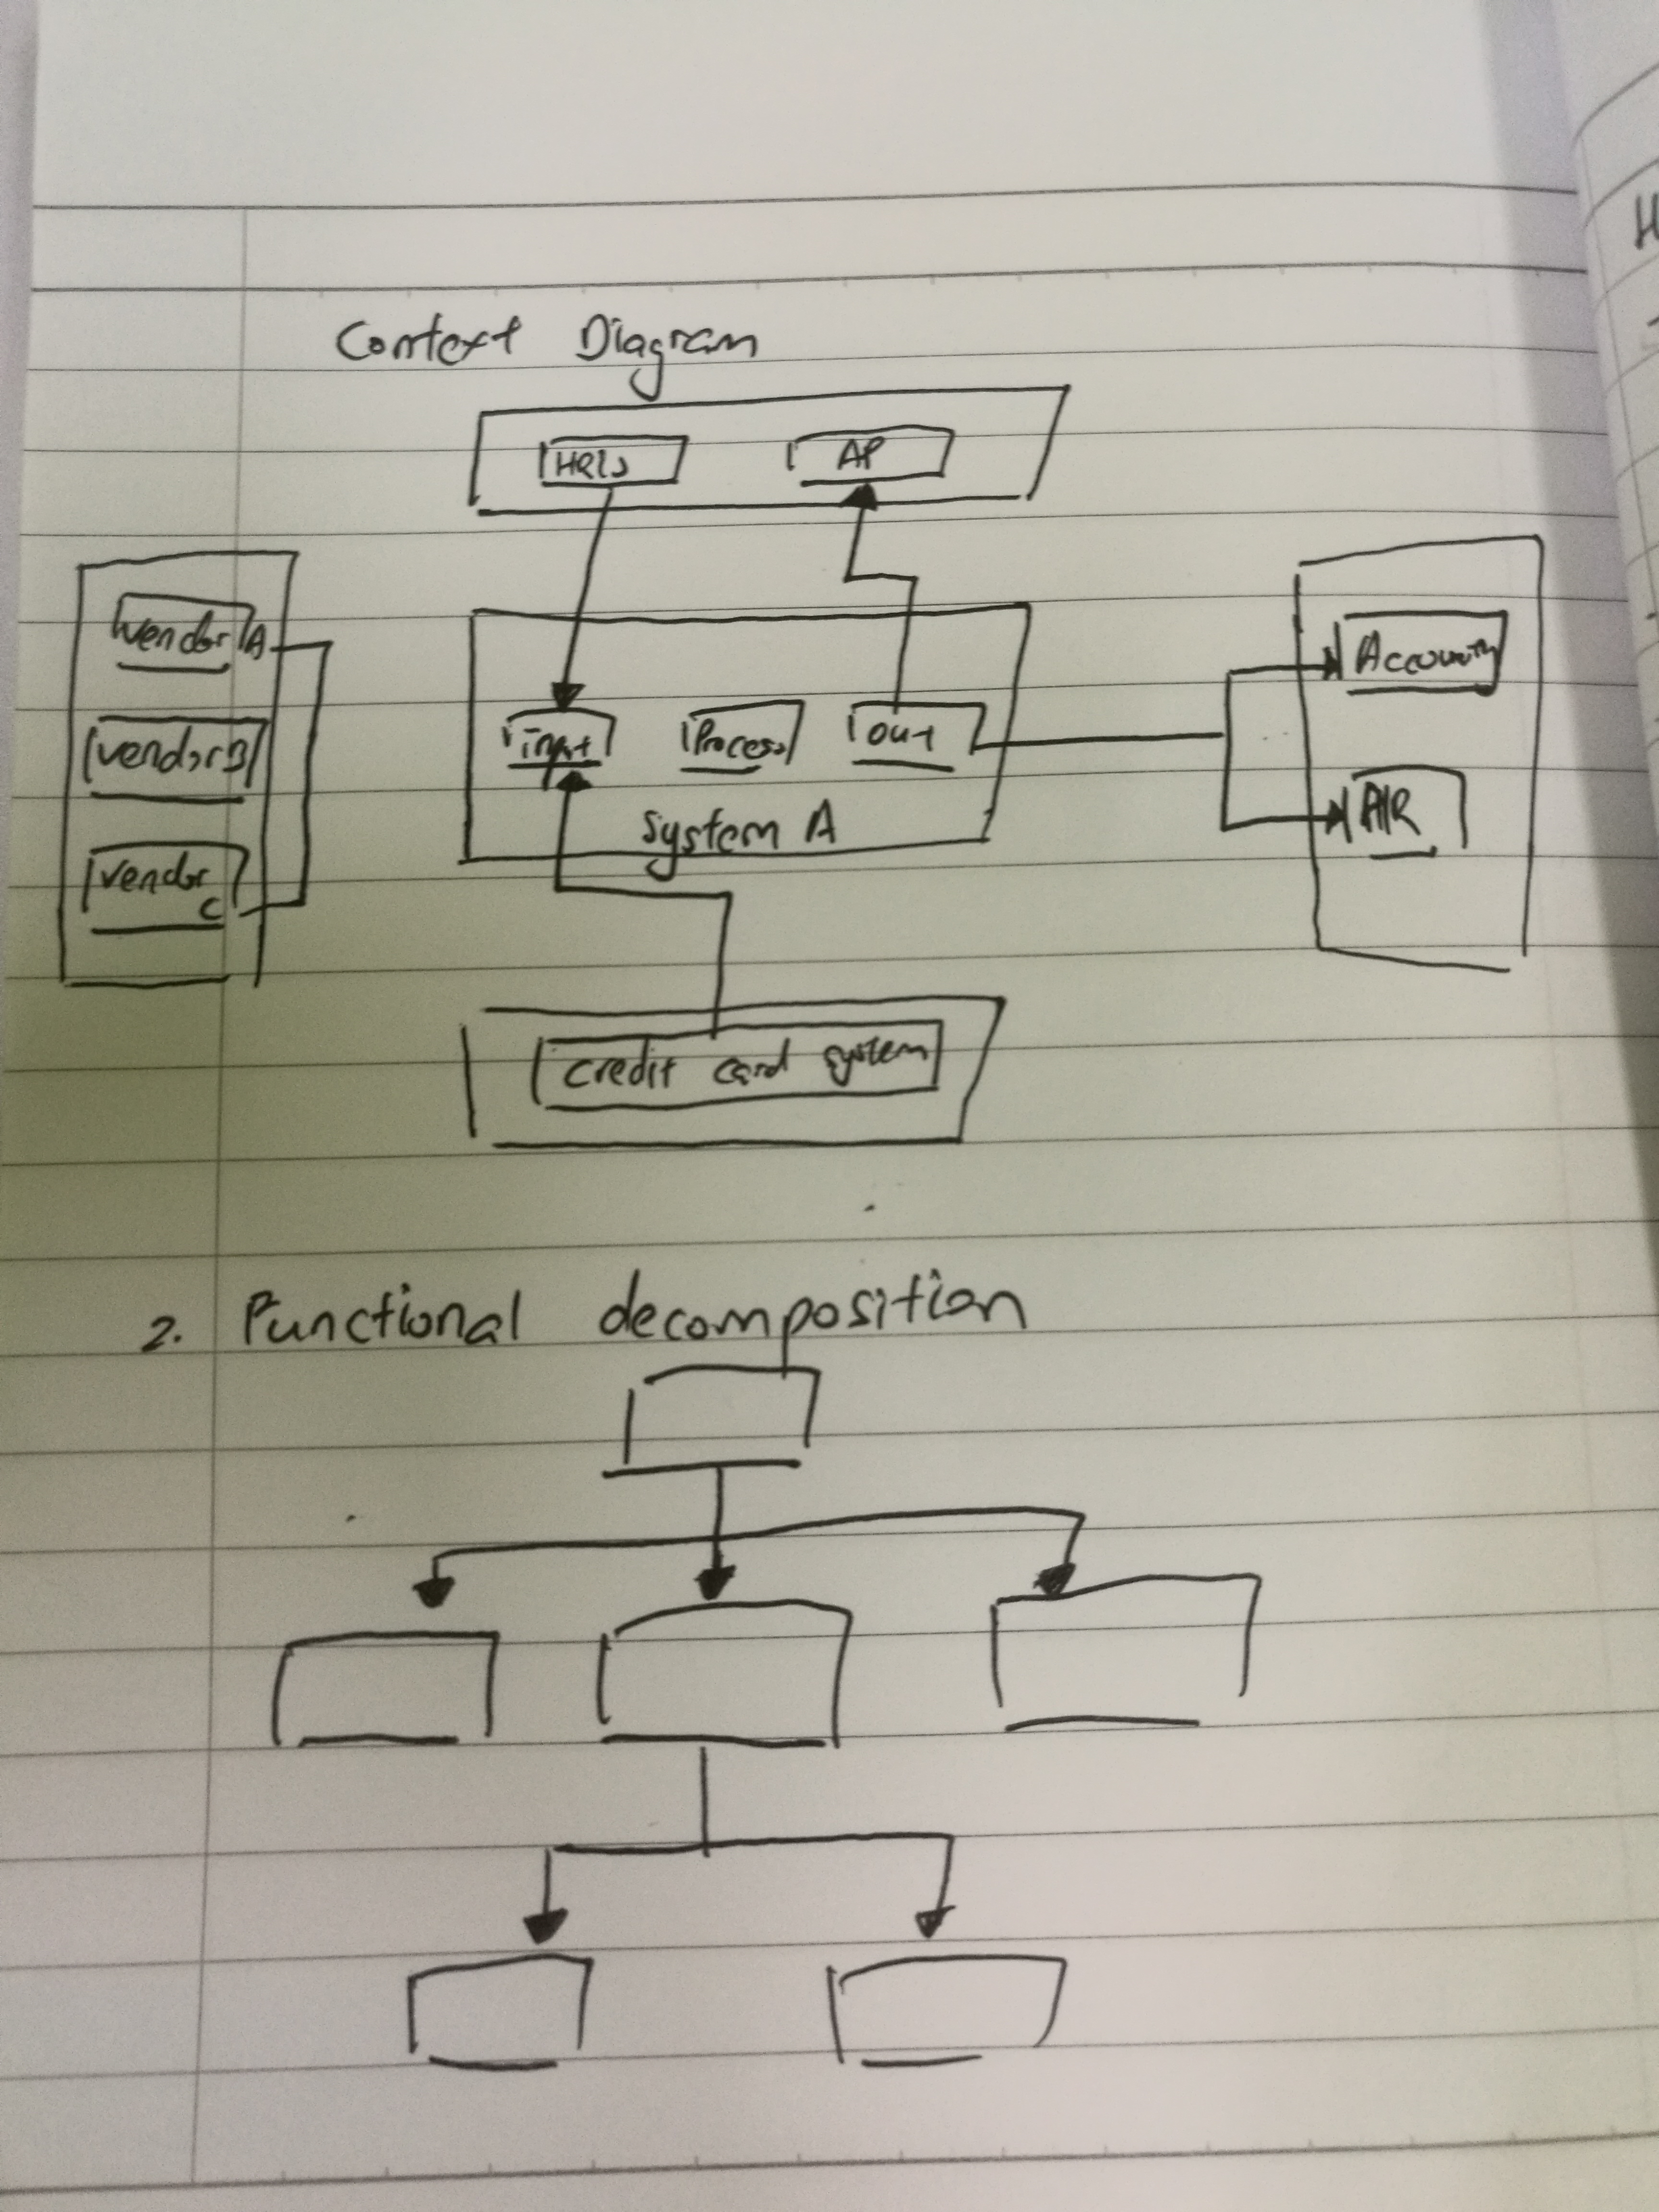 Context Diagram
HRIS
AP
vendor A
vendor B
vendor C
input
Process
out
System A
A/R
credit card system
2. Functional decomposition
H